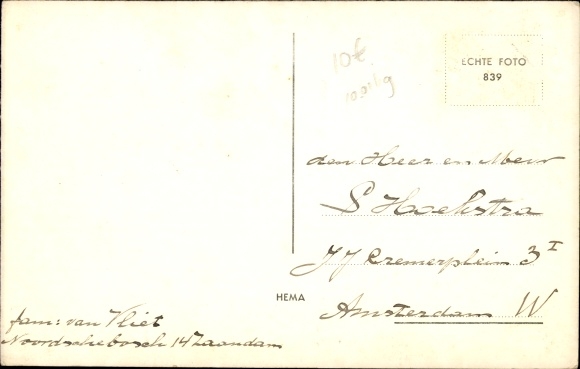 10€
ECHTE FOTO
839
den Heer en Mevr
S Hoekstra
J J Cremerplein 3 I
Amsterdam W
HEMA
fam: van Vliet
14 Zaandam